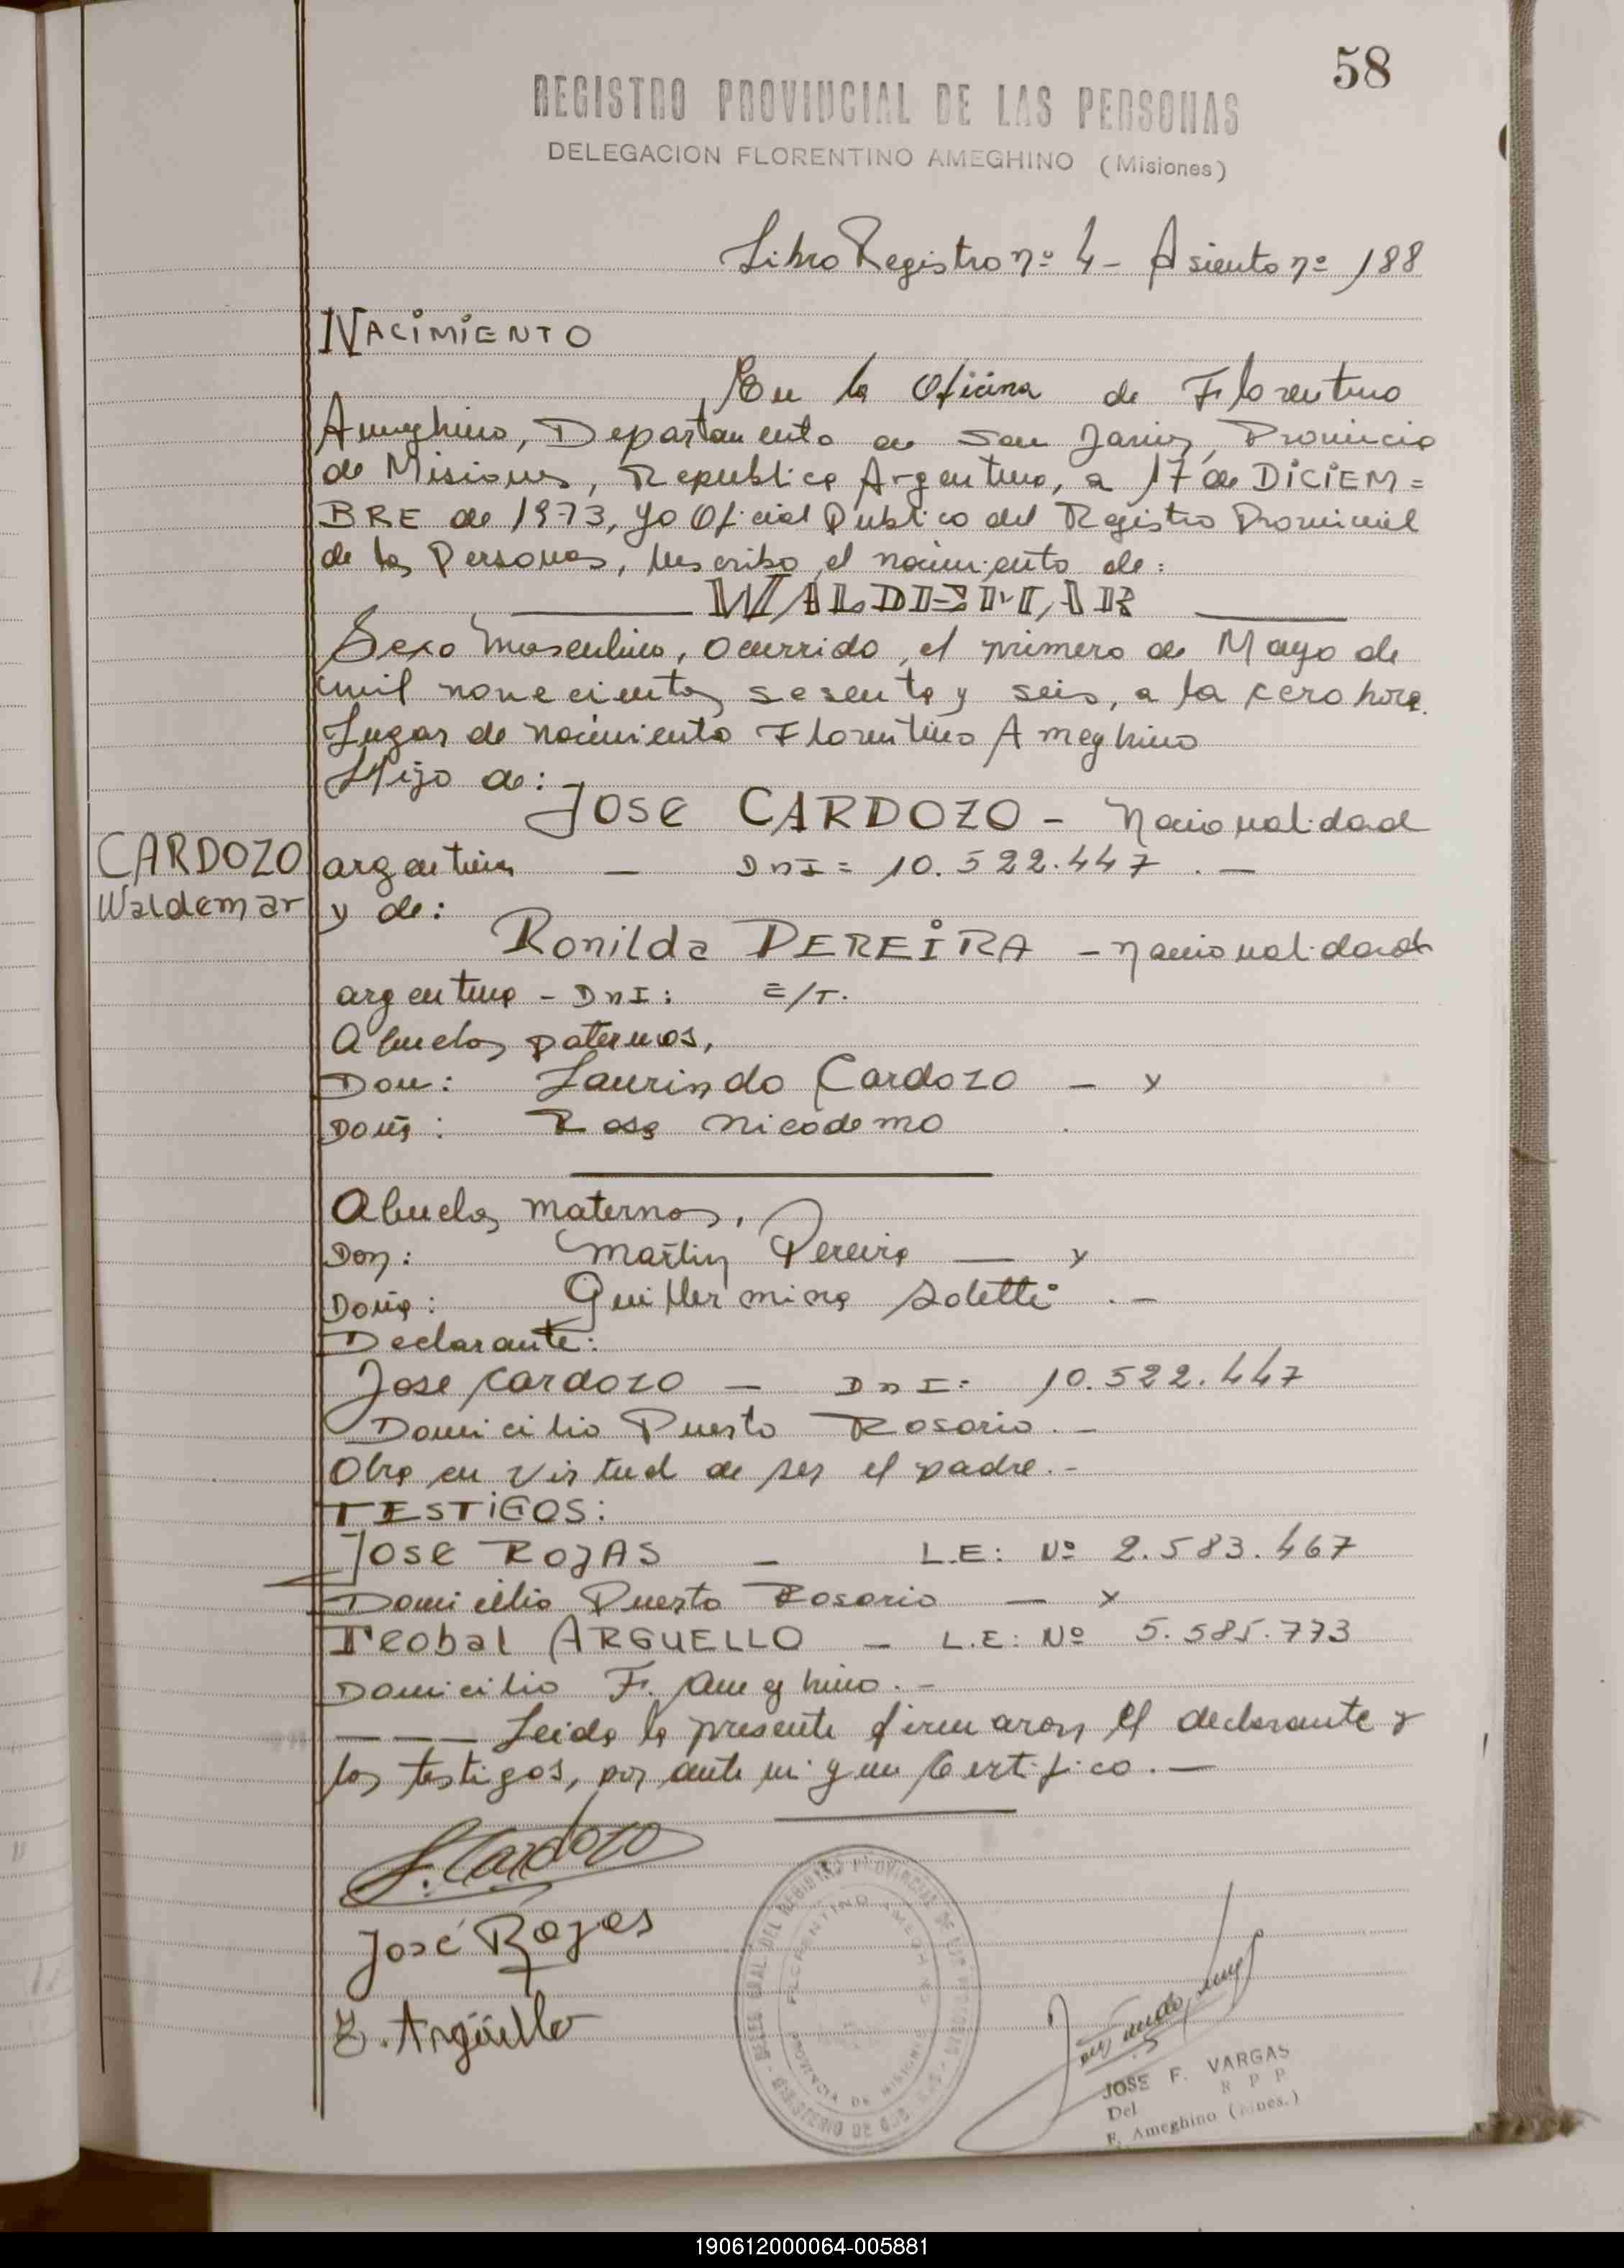 58
REGISTRO PROVINCIAL DE LAS PERSONAS
DELEGACION FLORENTINO AMEGHINO (Misiones)
Libro Registro nº 4 - Asiento nº 188
NACIMIENTO
En la Oficina de Florentino
Ameghino, Departamento de San Javier, Provincia
de Misiones, Republica Argentina, a 17 de DICIEM=
BRE de 1973, yo Oficial Publico del Registro Provincial
de las Personas, Inscribo el nacimiento de:
WALDEMAR
Sexo Masculino, ocurrido, el primero de Mayo de
mil novecientos sesenta y seis, a la cero hora.
Lugar de nacimiento Florentino Ameghino
Hijo de:
JOSE CARDOZO - Nacionalidad
CARDOZO argentina — DNI = 10.522.447 . —
Waldemar y de:
Ronilda PEREIRA - nacionalidad
argentina - DNI: E/T.
Abuelos paternos,
Don: Laurindo Cardozo — y
Doña: Rosa Nicodemo .
Abuelos maternos,
Don: Martin Pereira — y
Doña: Guillermina Soletti . —
Declarante:
Jose Cardozo — DNI: 10.522.447
Domicilio Puerto Rosario. -
Obra en virtud de ser el padre. -
TESTIGOS:
JOSE ROJAS — L.E: Nº 2.583.467
Domicilio Puerto Rosario — y
Teobal ARGUELLO — L.E: Nº 5.585.773
Domicilio F. Ameghino. -
— — — Leida la presente firmaron el declarante y
los testigos, por ante mi que Certifico. —
J. Cardozo
José Rojas
T. Argüello
FLORENTINO AMEGHINO
PROVINCIA DE MISIONES
JOSE F. VARGAS
Del R P P
F. Ameghino (Mnes.)
190612000064-005881